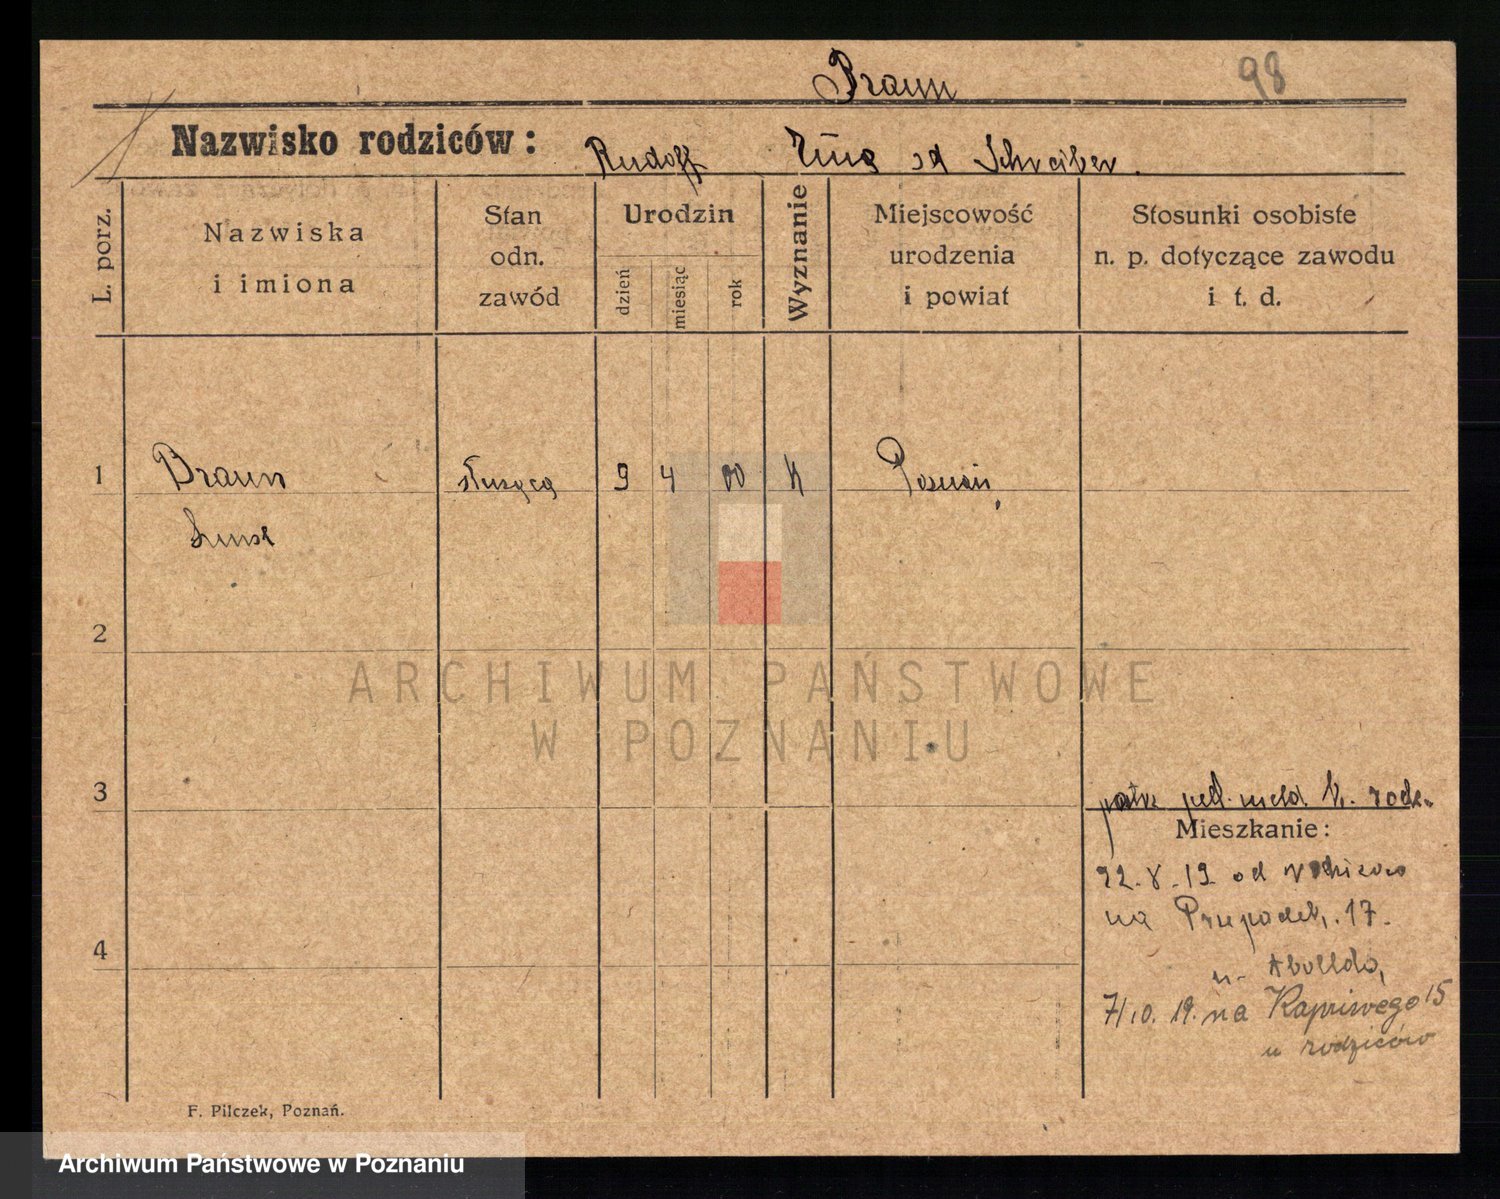 Braun
98
Nazwisko rodziców: Rudolf Schreiber.
L. porz.
Nazwiska
i imiona
Stan
odn.
zawód
Urodzin
dzień
miesiąc
rok
Wyznanie
Miejscowość
urodzenia
i powiat
Stosunki osobiste
n. p. dotyczące zawodu
i t. d.
1
Braun służąca 9 4 00 k Poznań
2
ARCHIWUM PAŃSTWOWE
W POZNANIU
3
meld. k. rodz.
Mieszkanie:
22. 8. 19 od rodziców
na Przepadek. 17.
4
u
7/10. 19. na 15
u rodziców
F. Pilczek, Poznań.
Archiwum Państwowe w Poznaniu